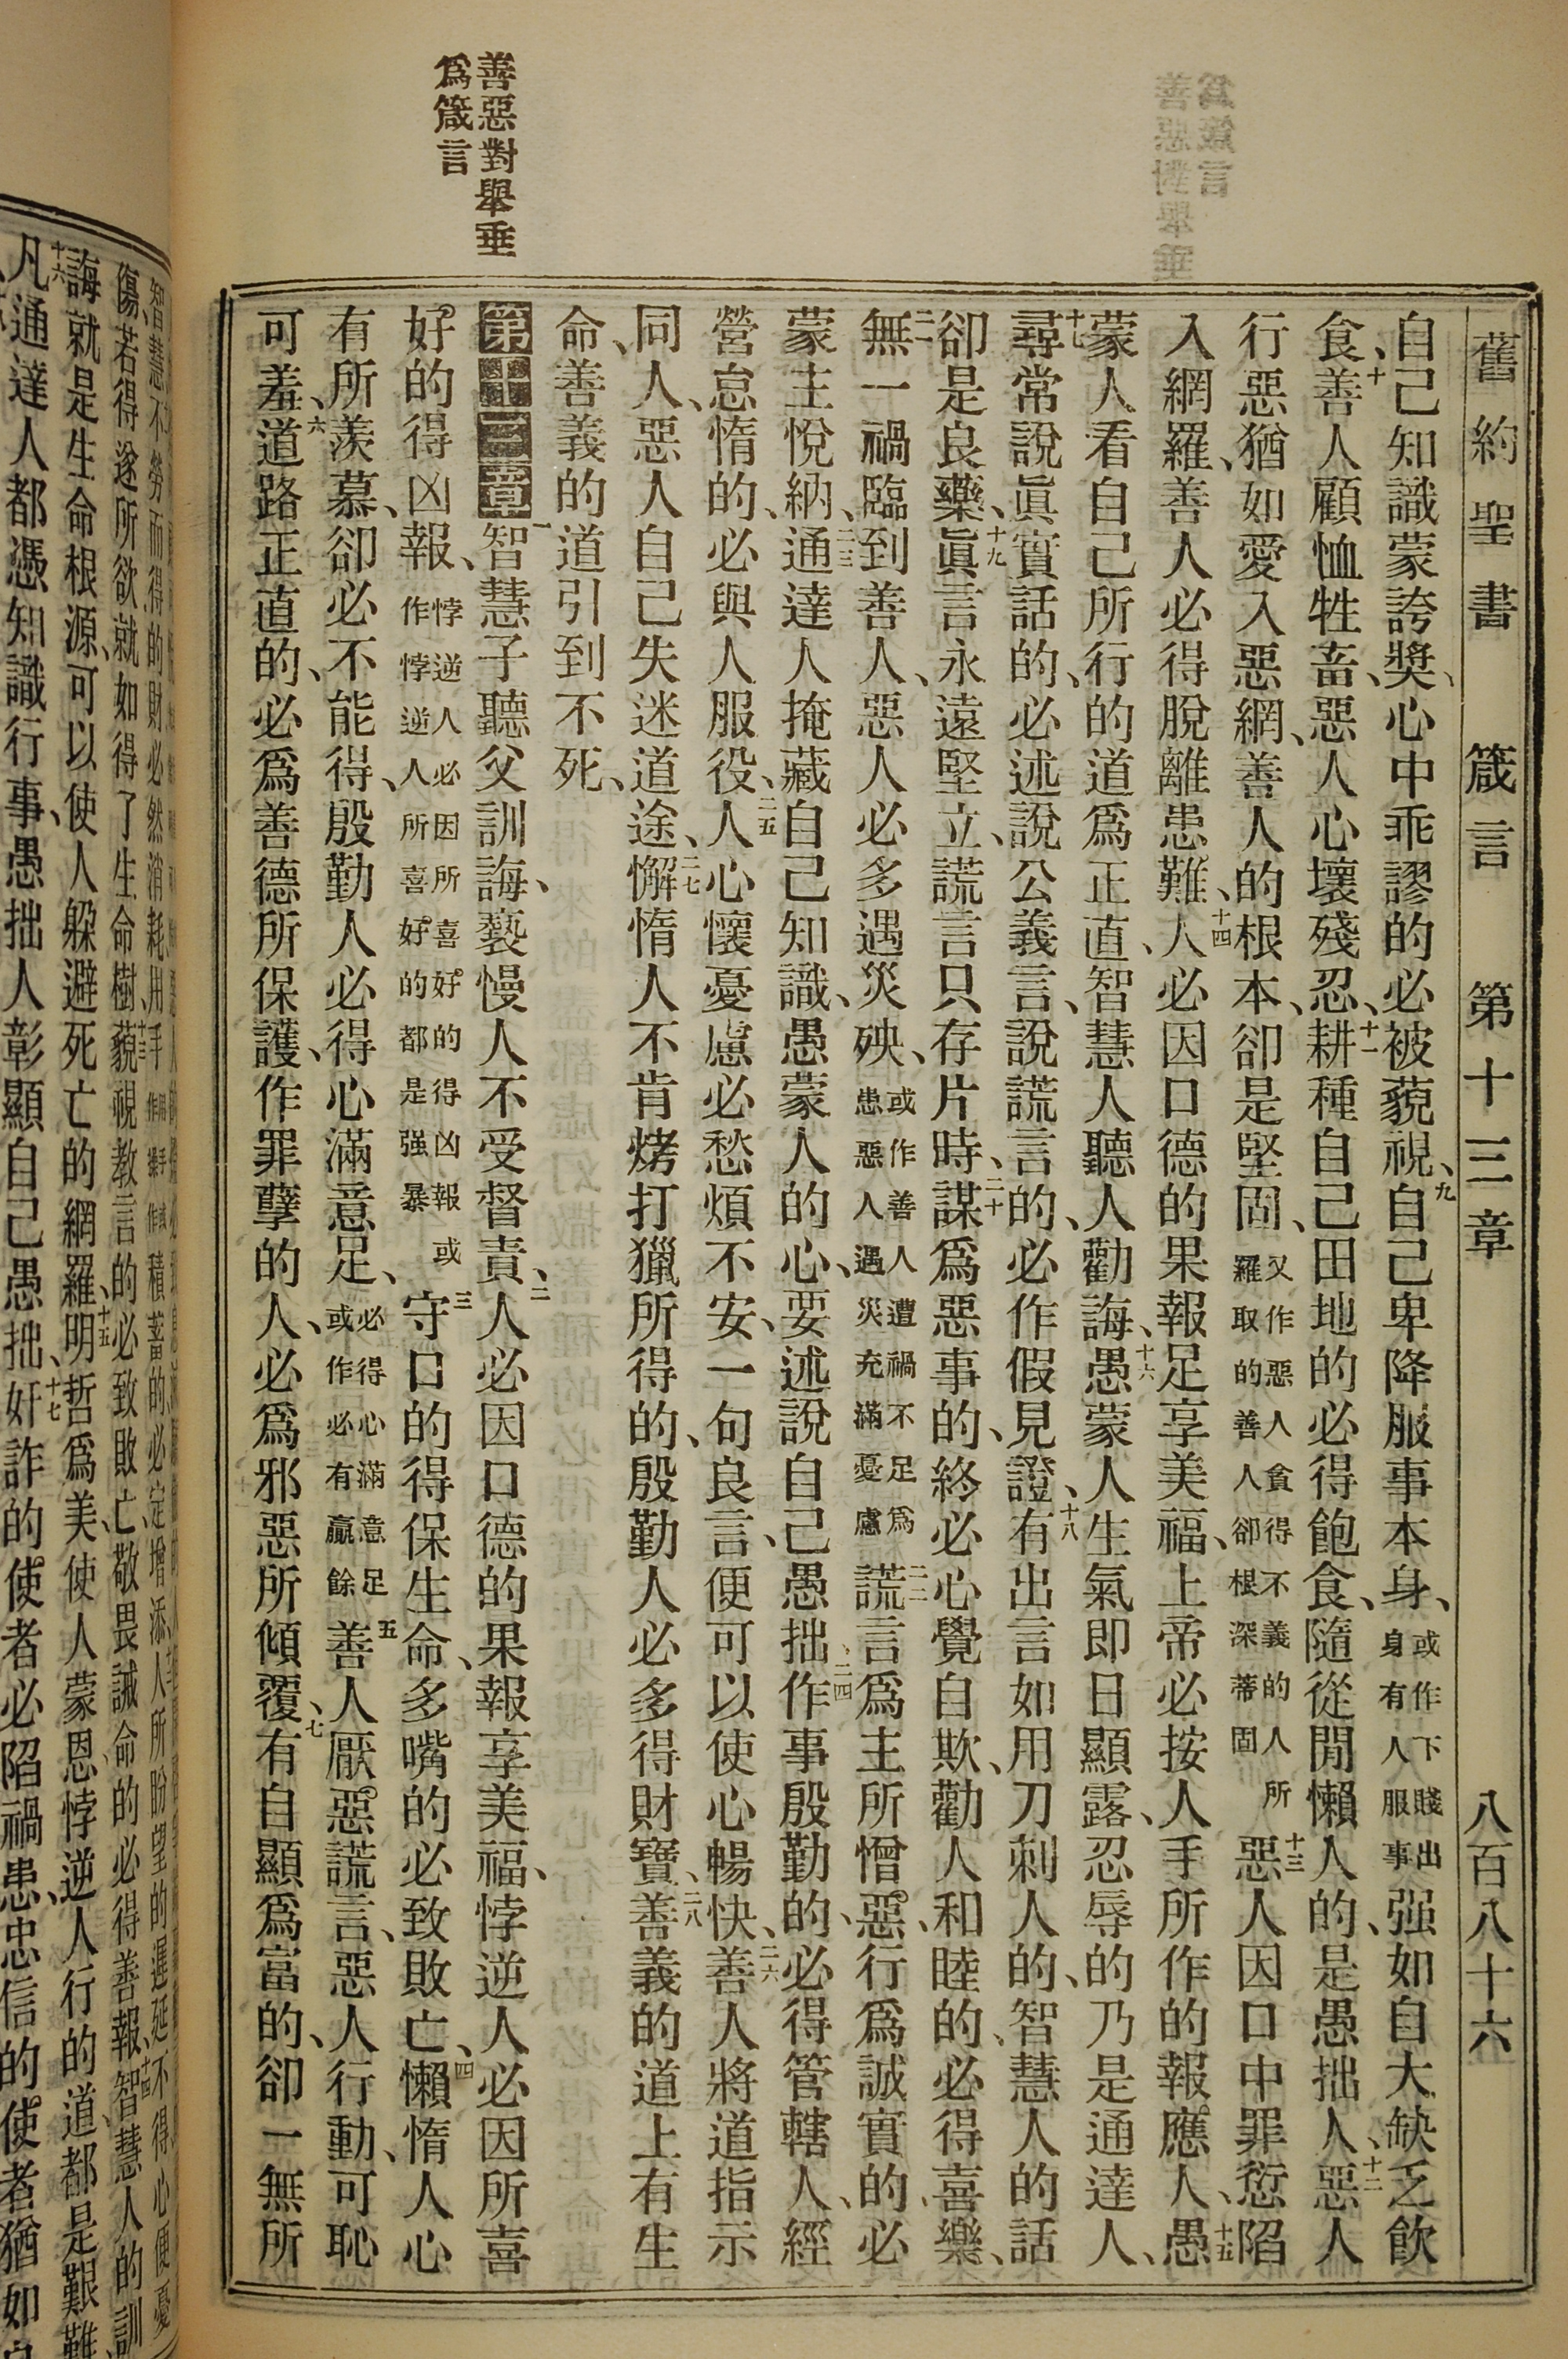 舊約聖書 箴言 第十三章 八百八十六
自己知識蒙誇獎、心中乖謬的必被藐視、九自己卑降服事本身、或作下賤出身有人服事强如自大缺乏飲
食、十善人顧恤牲畜、惡人心壞殘忍、十一耕種自己田地的必得飽食、隨從閒懶人的、是愚拙人、十二惡人
行惡猶如愛入惡網、善人的根本、卻是堅固、又作惡人貪得不義的人所羅取的善人卻根深蒂固十三惡人因口中罪愆陷
入網羅、善人必得脫離患難、十四人必因口德的果報足享美福、上帝必按人手所作的報應人、十五愚
蒙人看自己所行的道爲正直、智慧人聽人勸誨、十六愚蒙人生氣即日顯露、忍辱的乃是通達人、
十七尋常說眞實話的、必述說公義言、說謊言的、必作假見證、十八有出言如用刀刺人的、智慧人的話
卻是良藥、十九眞言永遠堅立、謊言只存片時、二十謀爲惡事的、終必心覺自欺、勸人和睦的、必得喜樂、
二一無一禍臨到善人、惡人必多遇災殃、或作善人遭禍不足爲患惡人遇災充滿憂慮二二謊言爲主所憎惡、行爲誠實的、必
蒙主悅納、二三通達人掩藏自己知識、愚蒙人的心、要述說自己愚拙、二四作事殷勤的、必得管轄人、經
營怠惰的、必與人服役、二五人心懷憂慮必愁煩不安、一句良言、便可以使心暢快、二六善人將道指示
同人、惡人自己失迷道途、二七懈惰人不肯烤打獵所得的、殷勤人必多得財寶、二八善義的道上有生
命、善義的道引到不死、
善惡對舉垂
爲箴言
第十三章 一智慧子聽父訓誨、褻慢人不受督責、二人必因口德的果報享美福、悖逆人必因所喜
好的得凶報、悖逆人必因所喜好的得凶報或作悖逆人所喜好的都是强暴三守口的得保生命、多嘴的必致敗亡、四懶惰人心
有所羨慕、卻必不能得、殷勤人必得心滿意足、必得心滿意足或作必有贏餘五善人厭惡謊言、惡人行動、可恥
可羞、六道路正直的、必爲善德所保護、作罪孽的人、必爲邪惡所傾覆、七有自顯爲富的、卻一無所
智慧不勞而得的財必然消耗用手積蓄的必定增添人所盼望的遲延不得心便憂
傷、若得遂所欲就如得了生命樹、十三藐視教言的必致敗亡、敬畏誡命的必得善報、十四智慧人的訓
誨就是生命根源、可以使人躱避死亡的網羅、十五明哲爲美、使人蒙恩、悖逆人行的道、都是艱難
十六凡通達人都憑知識行事、愚拙人彰顯自己愚拙、十七奸詐的使者必陷禍患、忠信的使者猶如良